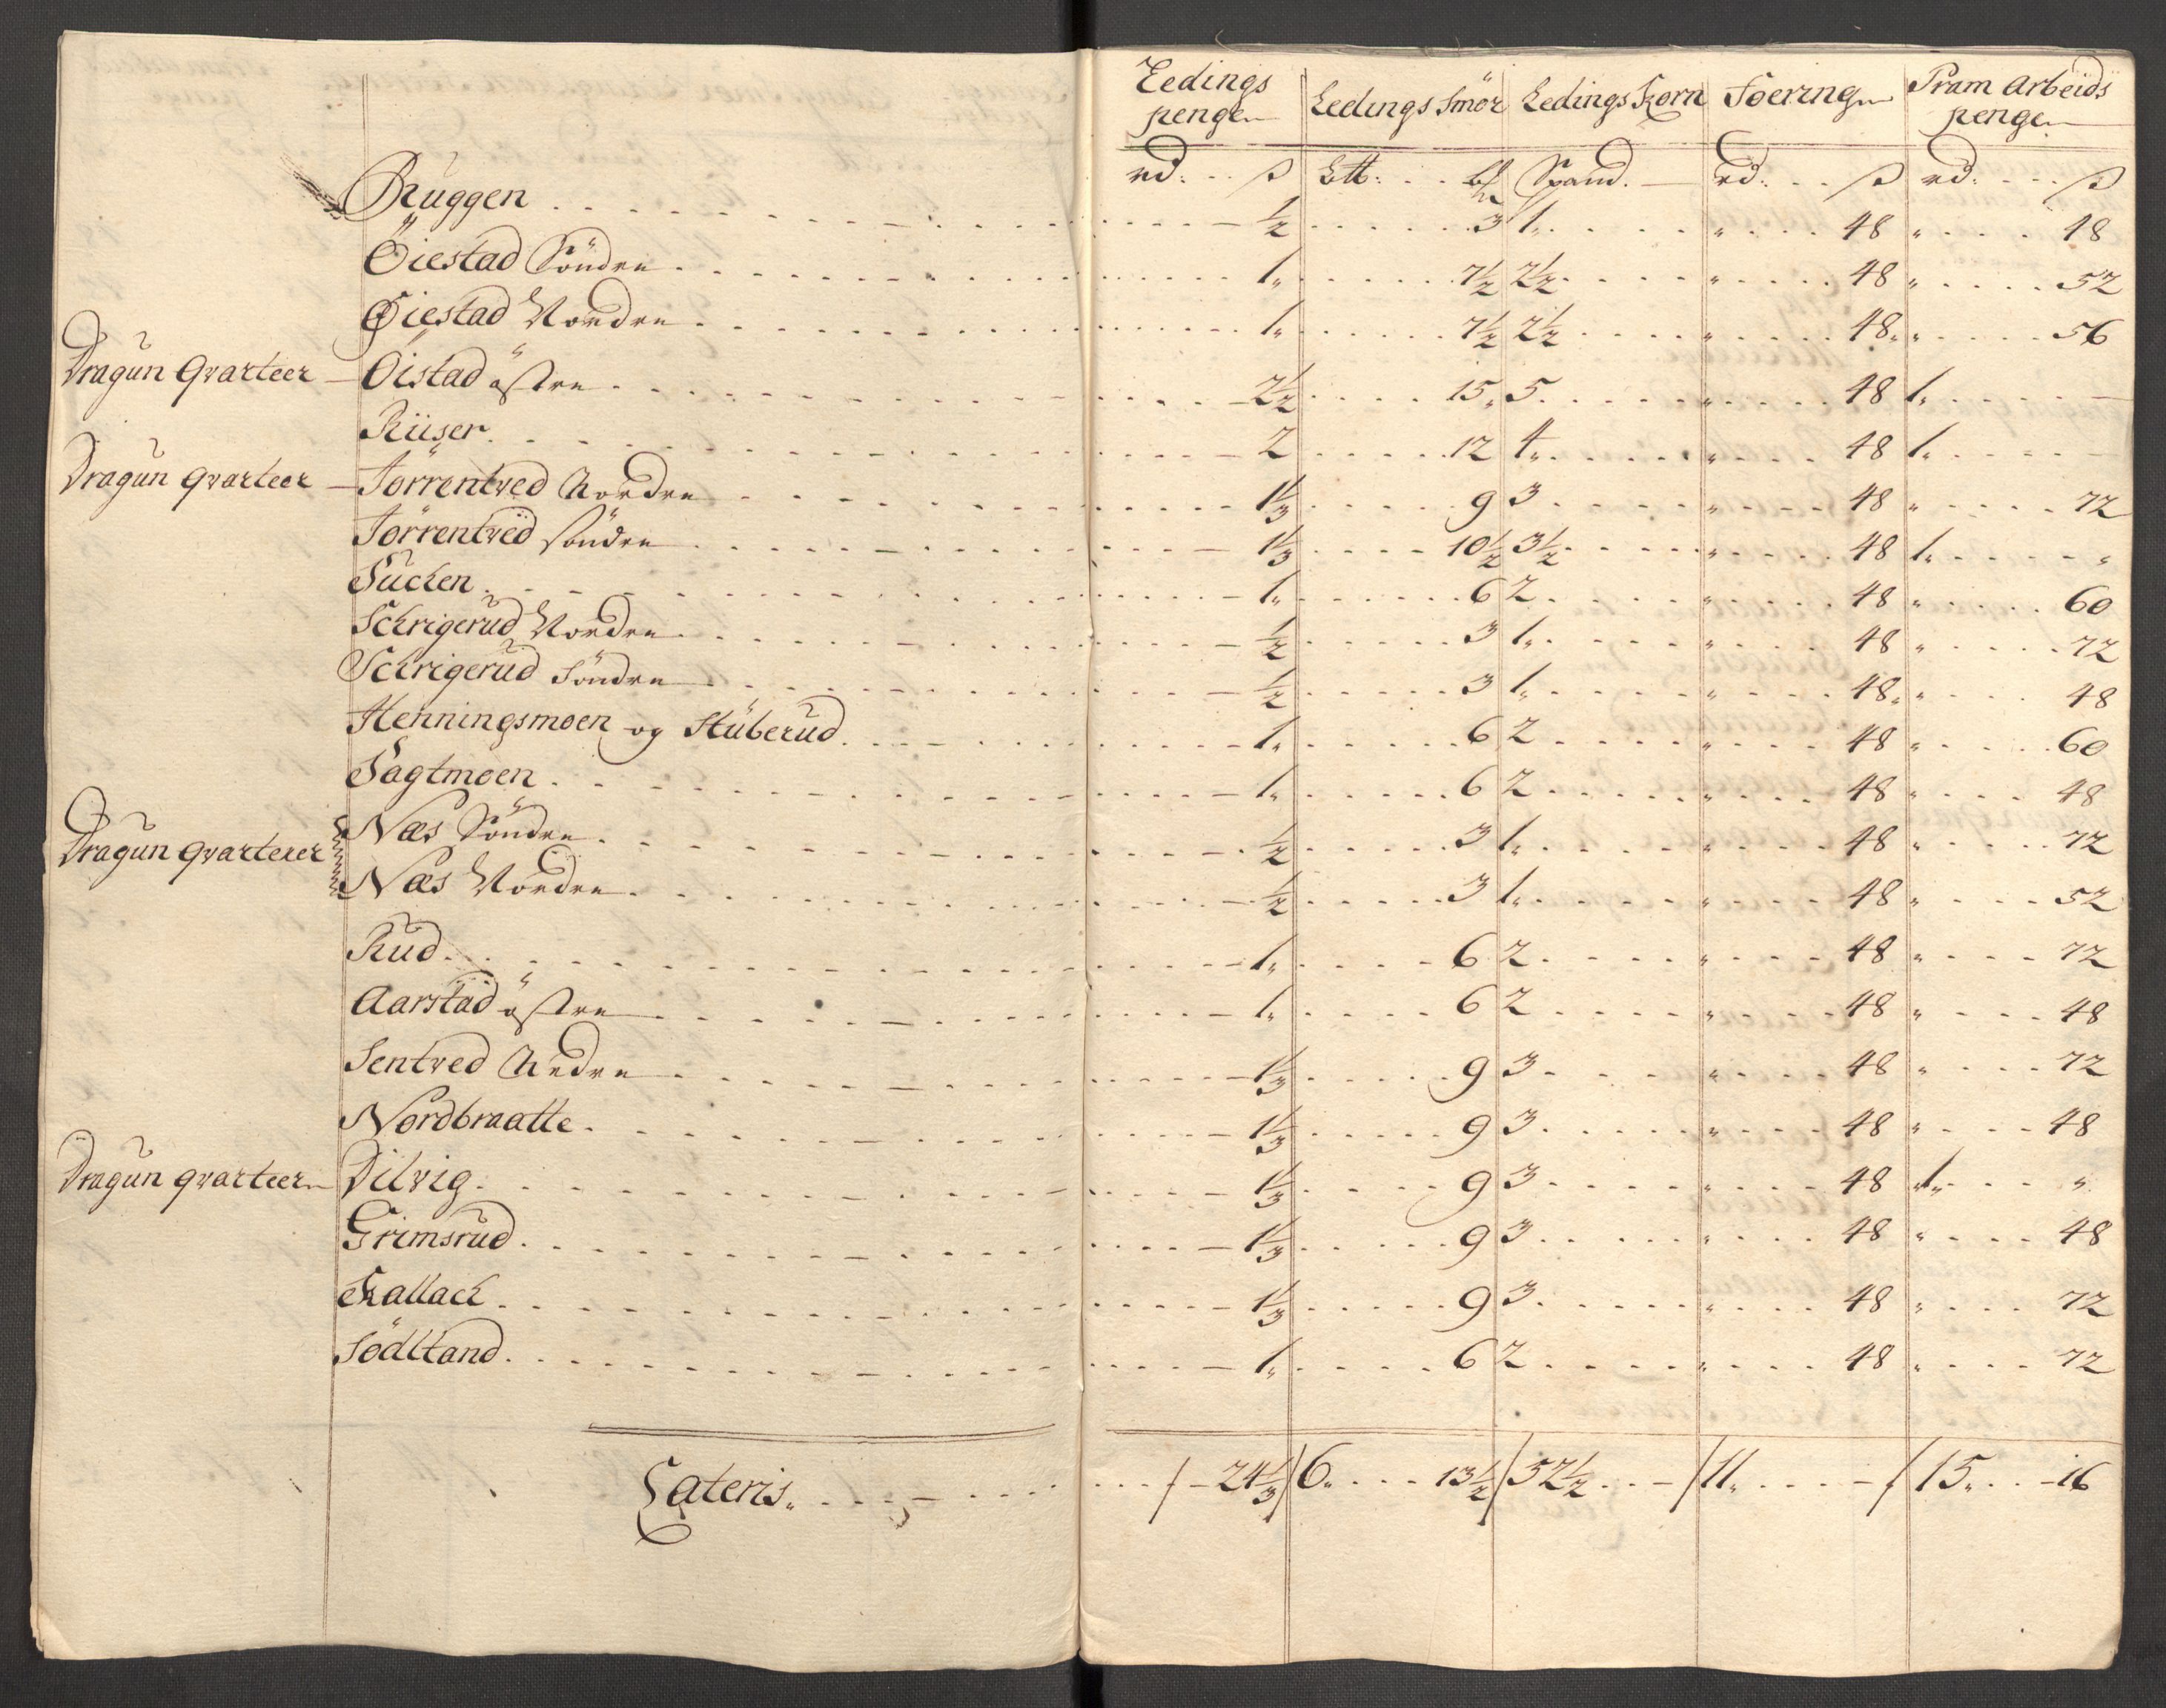 Ledings pengen | Ledings Smör | Ledings Korn | Foering | Pram Arbeids pengen
rd: ß | L℔: | Spand. | rd: ß | rd: ß
Ruggen . . . ½ . . . 3 | 1. . . . „ . . . 48 | „ . . . 48
Öiestad Söndre . . . 1„ . . . 7½ | 2½ . . . „ . . . 48 | „ . . . 52
Öiestad Nordre . . . 1„ . . . 7½ | 2½ . . . „ . . . 48 | „ . . . 56
Dragun Qvarteer — Öistad östre . . . 2½ . . . 15„ | 5 . . . „ . . . 48 | 1„ . . . —
Riiser . . . 2 . . . 12 | 4„ . . . „ . . . 48 | 1„ . . . —
Dragun qvarteer — Törrentved Nordre . . . 1⅓ . . . 9 | 3 . . . „ . . . 48 | „ . . . 72
Törrentved söndre . . . 1⅓ . . . 10½ | 3½ . . . „ . . . 48 | 1„ . . . „
Sucken . . . 1„ . . . 6 | 2 . . . „ . . . 48 | „ . . . 60
Schrigerud Nordre . . . ½ . . . 3 | 1„ . . . „ . . . 48 | „ . . . 72
Schrigerud Söndre . . . ½ . . . 3 | 1„ . . . „ . . . 48 | „ . . . 48
Henningsmoen og Stuberud . . . 1„ . . . 6 | 2 . . . „ . . . 48 | „ . . . 60
Sagtmoen . . . 1„ . . . 6 | 2 . . . „ . . . 48 | „ . . . 48
Dragun qvarterer Næs Söndre . . . ½ . . . 3 | 1„ . . . „ . . . 48 | „ . . . 72
Næs Nordre . . . ½ . . . 3 | 1„ . . . „ . . . 48 | „ . . . 52
Rud . . . 1„ . . . 6 | 2 . . . „ . . . 48 | „ . . . 72
Aarstad östre . . . 1„ . . . 6 | 2 . . . „ . . . 48 | „ . . . 48
Sentved Nedre . . . 1⅓ . . . 9 | 3 . . . „ . . . 48 | „ . . . 72
Nordbraatte . . . 1⅓ . . . 9 | 3 . . . „ . . . 48 | „ . . . 48
Dragun qvarteer Dilvig . . . 1⅓ . . . 9 | 3 . . . „ . . . 48 | 1„ . . . „
Grimsrud . . . 1⅓ . . . 9 | 3 . . . „ . . . 48 | „ . . . 48
Skallack . . . 1⅓ . . . 9 | 3 . . . „ . . . 48 | „ . . . 72
Södltand . . . 1„ . . . 6 | 2 . . . „ . . . 48 | „ . . . 72
Lateris„ . . . / — 24⅓ / 6„ . . . 13½ / 52½ . . — / 11„ . . . — / 15„ . . — 16